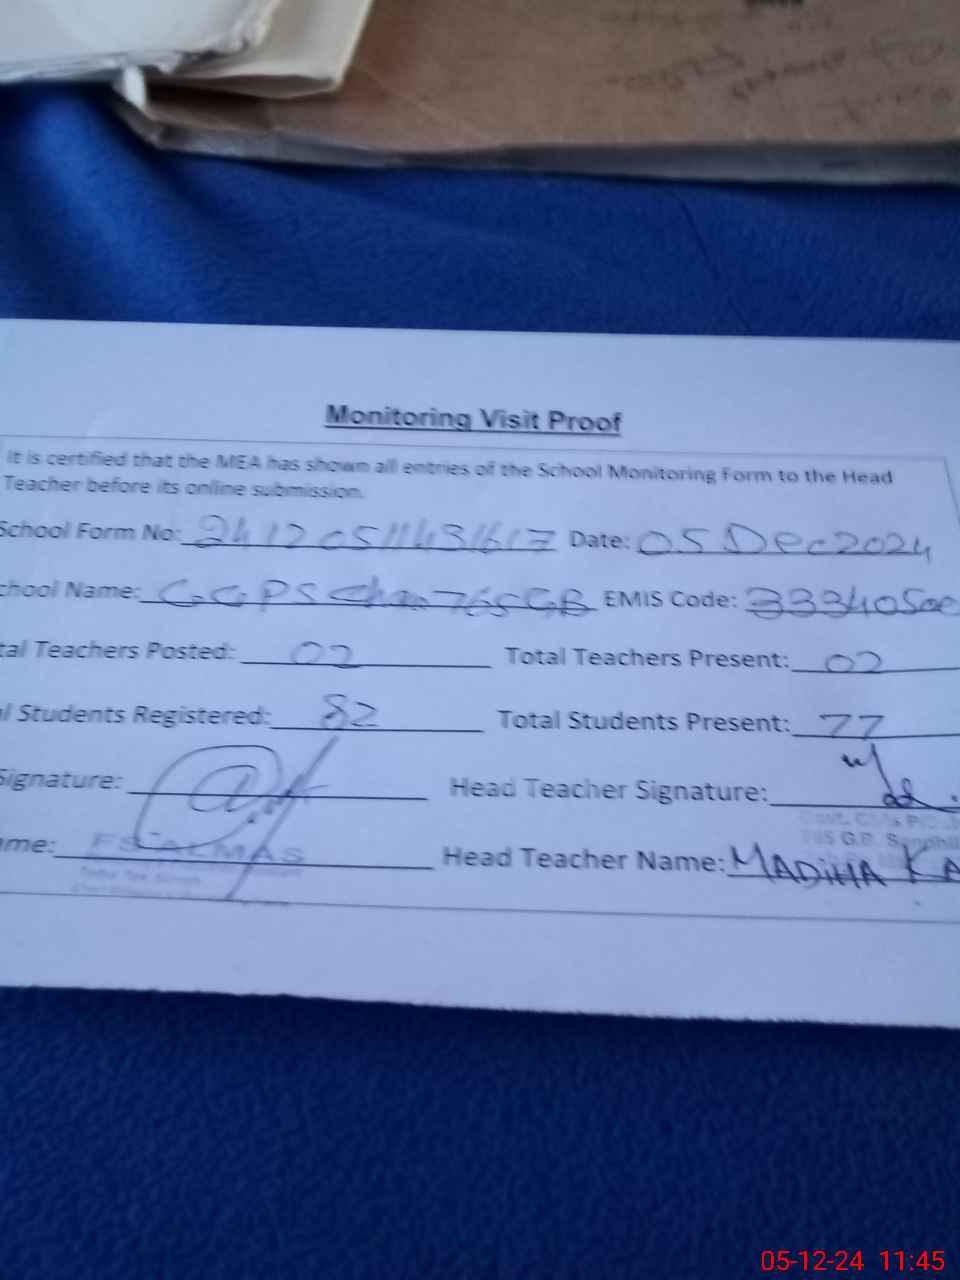 Monitoring Visit Proof
It is certified that the MEA has shown all entries of the School Monitoring Form to the Head
Teacher before its online submission.
School Form No: Date: 05 Dec 2024
chool Name: GGPS Chak 765 GB EMIS Code:
tal Teachers Posted: 02 Total Teachers Present: 02
l Students Registered: 82 Total Students Present: 77
Signature: Head Teacher Signature:
765 G.B.
ame: ALMAS Head Teacher Name: MADIHA KA
05-12-24 11:45